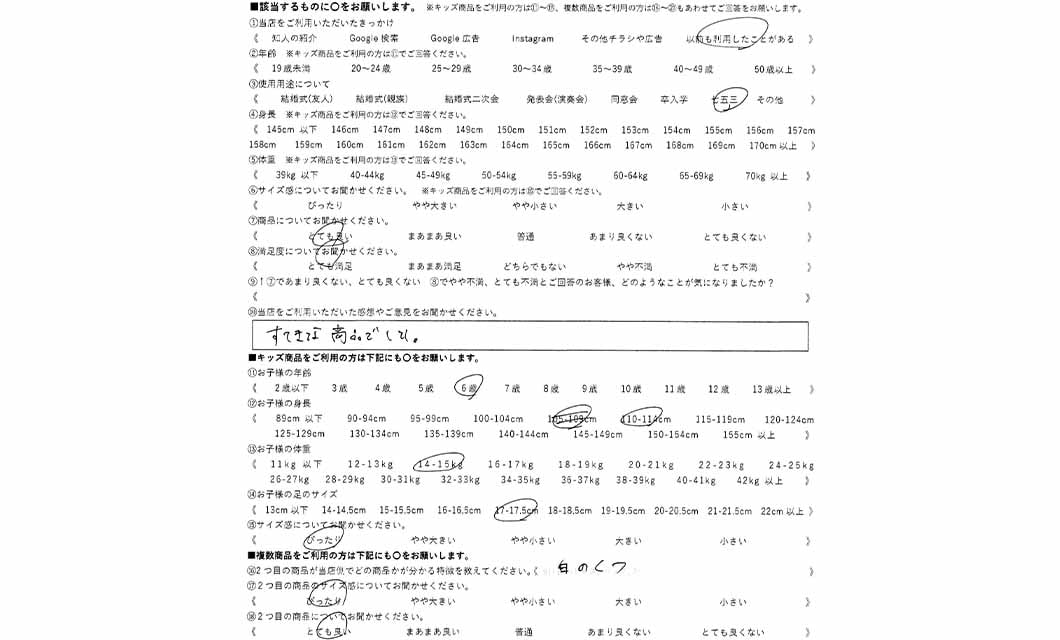 ■該当するものに〇をお願いします。 ※キッズ商品をご利用の方は⑪～⑮、複数商品をご利用の方は⑯～㉑もあわせてご回答をお願いします。
①当店をご利用いただいたきっかけ
《 知人の紹介 Google 検索 Google 広告 Instagram その他チラシや広告 以前も利用したことがある 》
②年齢 ※キッズ商品をご利用の方は⑪でご回答ください。
《 19歳未満 20～24歳 25～29歳 30～34歳 35～39歳 40～49歳 50歳以上 》
③使用用途について
《 結婚式(友人) 結婚式(親族) 結婚式二次会 発表会(演奏会) 同窓会 卒入学 七五三 その他 》
④身長 ※キッズ商品をご利用の方は⑫でご回答ください。
《 145cm 以下 146cm 147cm 148cm 149cm 150cm 151cm 152cm 153cm 154cm 155cm 156cm 157cm
158cm 159cm 160cm 161cm 162cm 163cm 164cm 165cm 166cm 167cm 168cm 169cm 170cm 以上 》
⑤体重 ※キッズ商品をご利用の方は⑬でご回答ください。
《 39kg 以下 40-44kg 45-49kg 50-54kg 55-59kg 60-64kg 65-69kg 70kg 以上 》
⑥サイズ感についてお聞かせください。 ※キッズ商品をご利用の方は⑮でご回答ください。
《 ぴったり やや大きい やや小さい 大きい 小さい 》
⑦商品についてお聞かせください。
《 とても良い まあまあ良い 普通 あまり良くない とても良くない 》
⑧満足度についてお聞かせください。
《 とても満足 まあまあ満足 どちらでもない やや不満 とても不満 》
⑨↑⑦であまり良くない、とても良くない ⑧でやや不満、とても不満とご回答のお客様、どのようなことが気になりましたか？
《 》
⑩当店をご利用いただいた感想やご意見をお聞かせください。
すてきな 商品でした。
■キッズ商品をご利用の方は下記にも〇をお願いします。
⑪お子様の年齢
《 2歳以下 3歳 4歳 5歳 6歳 7歳 8歳 9歳 10歳 11歳 12歳 13歳以上 》
⑫お子様の身長
《 89cm 以下 90-94cm 95-99cm 100-104cm 105-109cm 110-114cm 115-119cm 120-124cm
125-129cm 130-134cm 135-139cm 140-144cm 145-149cm 150-154cm 155cm 以上 》
⑬お子様の体重
《 11kg 以下 12-13kg 14-15kg 16-17kg 18-19kg 20-21kg 22-23kg 24-25kg
26-27kg 28-29kg 30-31kg 32-33kg 34-35kg 36-37kg 38-39kg 40-41kg 42kg 以上 》
⑭お子様の足のサイズ
《 13cm 以下 14-14.5cm 15-15.5cm 16-16.5cm 17-17.5cm 18-18.5cm 19-19.5cm 20-20.5cm 21-21.5cm 22cm 以上 》
⑮サイズ感についてお聞かせください。
《 ぴったり やや大きい やや小さい 大きい 小さい 》
■複数商品をご利用の方は下記にも〇をお願いします。
⑯2つ目の商品が当店側でどの商品かが分かる特徴を教えてください。《 白のくつ 》
⑰2つ目の商品のサイズ感についてお聞かせください。
《 ぴったり やや大きい やや小さい 大きい 小さい 》
⑱2つ目の商品についてお聞かせください。
《 とても良い まあまあ良い 普通 あまり良くない とても良くない 》